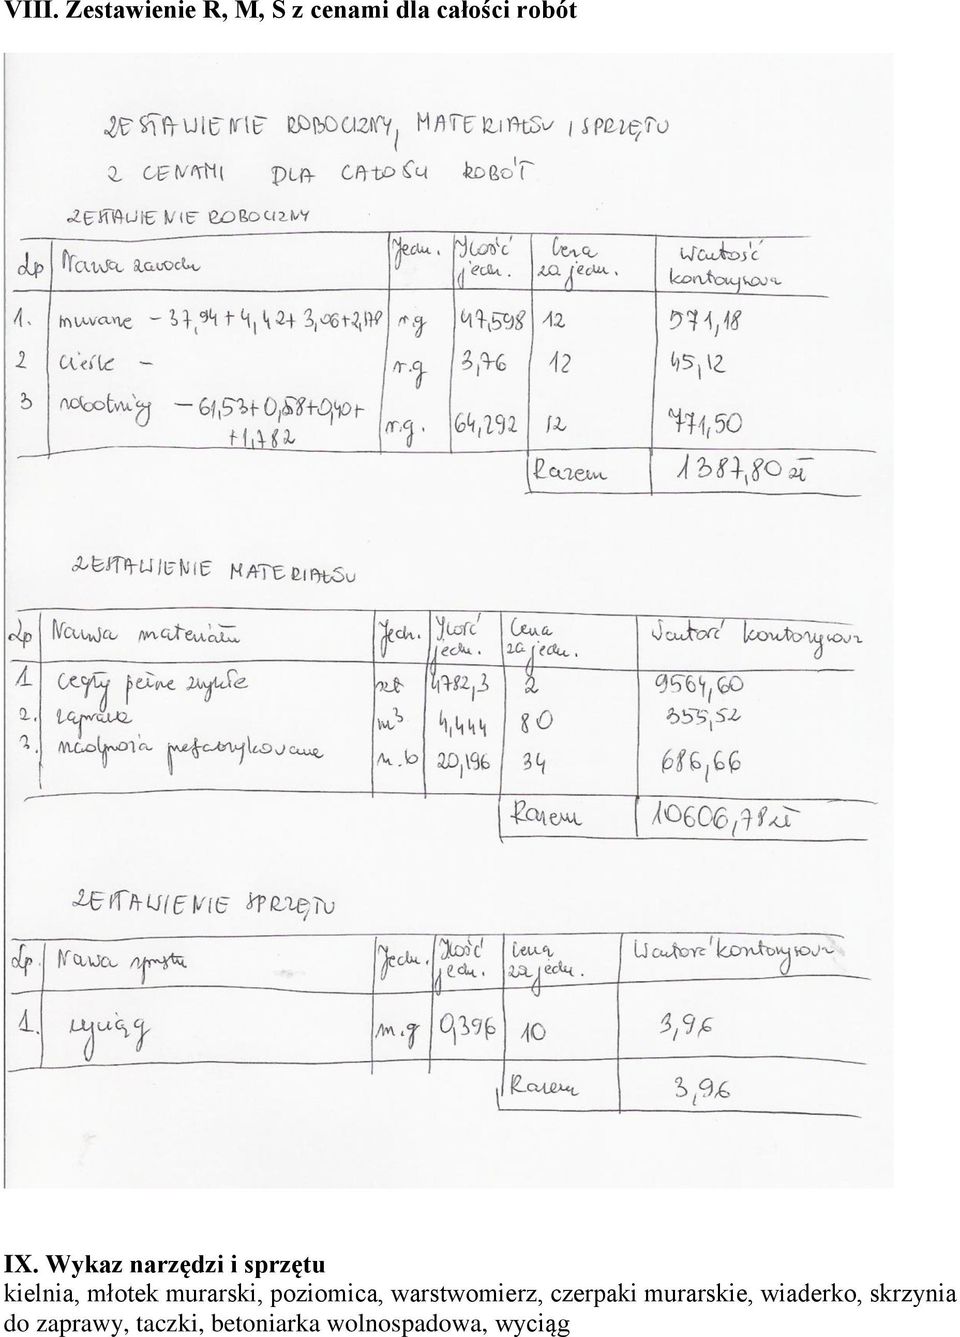 VIII. Zestawienie R, M, S z cenami dla całości robót
ZESTAWIENIE ROBOCIZNY, MATERIAŁÓW I SPRZĘTU
Z CENAMI DLA CAŁOŚCI ROBÓT
ZESTAWIENIE ROBOCIZNY
Lp Nazwa zawodu Jedn. Ilość jedn. Cena za jedn. Wartość kosztorysowa
1. murarze – 37,94 + 4,42 + 3,06 + 2,178 r.g 47,598 12 571,18
2 cieśle – r.g 3,76 12 45,12
3 robotnicy – 61,53 + 0,58 + 0,40 + r.g. 64,292 12 771,50
+ 1,782
Razem 1387,80 zł
ZESTAWIENIE MATERIAŁÓW
Lp Nazwa materiału Jedn. Ilość jedn. Cena za jedn. Wartość kosztorysowa
1 cegły pełne zwykłe szt 4782,3 2 9564,60
2. zaprawa m³ 4,444 80 355,52
3. nadproża prefabrykowane m.b 20,196 34 686,66
Razem 10606,78 zł
ZESTAWIENIE SPRZĘTU
Lp. Nazwa sprzętu Jedn. Ilość jedn. Cena za jedn. Wartość kosztorysowa
1. wyciąg m.g 0,396 10 3,96
Razem 3,96
IX. Wykaz narzędzi i sprzętu
kielnia, młotek murarski, poziomica, warstwomierz, czerpaki murarskie, wiaderko, skrzynia
do zaprawy, taczki, betoniarka wolnospadowa, wyciąg